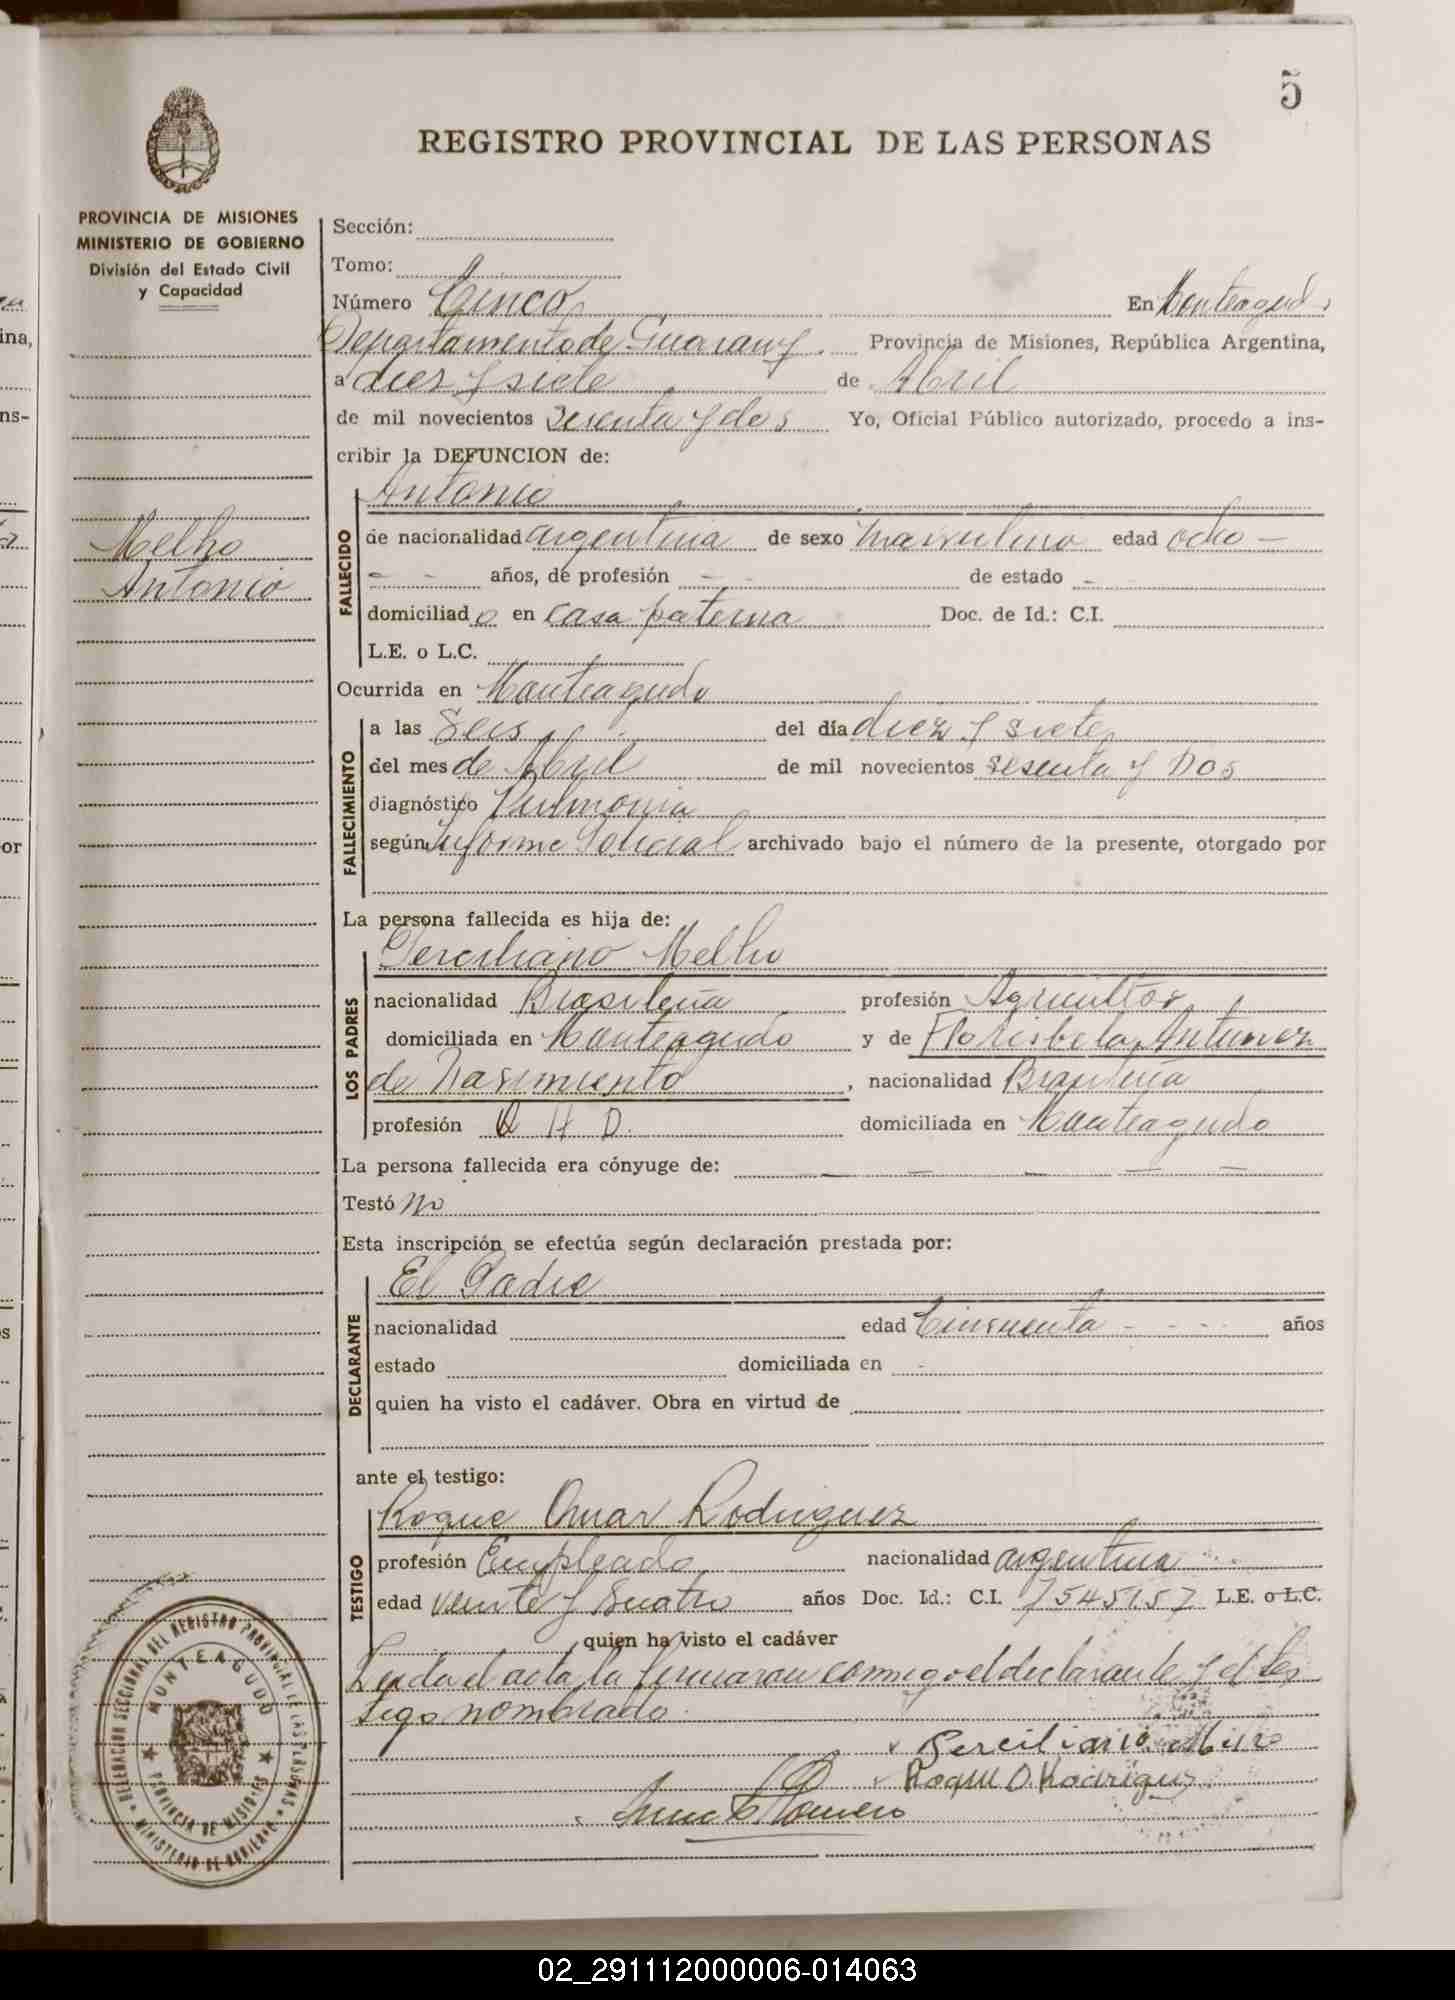 5
REGISTRO PROVINCIAL DE LAS PERSONAS
PROVINCIA DE MISIONES
MINISTERIO DE GOBIERNO
División del Estado Civil
y Capacidad
Melho
Antonio
Sección:
Tomo:
Número Cinco En Monteagudo
Departamento de Guarany. Provincia de Misiones, República Argentina,
a diez y siete de Abril
de mil novecientos sesenta y dos Yo, Oficial Público autorizado, procedo a ins-
cribir la DEFUNCION de:
FALLECIDO
Antonio
de nacionalidad argentina de sexo masculino edad ocho —
- - años, de profesión - - de estado -
domiciliado en casa paterna Doc. de Id.: C.I.
L.E. o L.C.
Ocurrida en Monteagudo
FALLECIMIENTO
a las Seis del día diez y siete
del mes de Abril de mil novecientos sesenta y Dos
diagnóstico Pulmonia
según Informe Policial archivado bajo el número de la presente, otorgado por
La persona fallecida es hija de:
LOS PADRES
Perciliano Melho
nacionalidad Brasileña profesión Agricultor
domiciliada en Monteagudo y de Florisbela Antunez
de Nasimiento, nacionalidad Brasileña
profesión Q H D. domiciliada en Monteagudo
La persona fallecida era cónyuge de: — — — — —
Testó no
Esta inscripción se efectúa según declaración prestada por:
DECLARANTE
El Padre
nacionalidad edad Cincuenta - - - - años
estado domiciliada en -
quien ha visto el cadáver. Obra en virtud de
ante el testigo:
TESTIGO
Roque Omar Rodriguez
profesión Empleado nacionalidad argentina
edad veinte y Cuatro años Doc. Id.: C.I. 7545157 L.E. o L.C.
quien ha visto el cadáver
Leida el acta la firmaran conmigo el declarante y el tes
tigo nombrado.
Perciliano
Roque O. Rodriguez
Romero
DELEGACION SECCIONAL DEL REGISTRO PROVINCIAL DE LAS PERSONAS
MONTEAGUDO
PROVINCIA DE MISIONES
MINISTERIO DE GOBIERNO
02_291112000006-014063